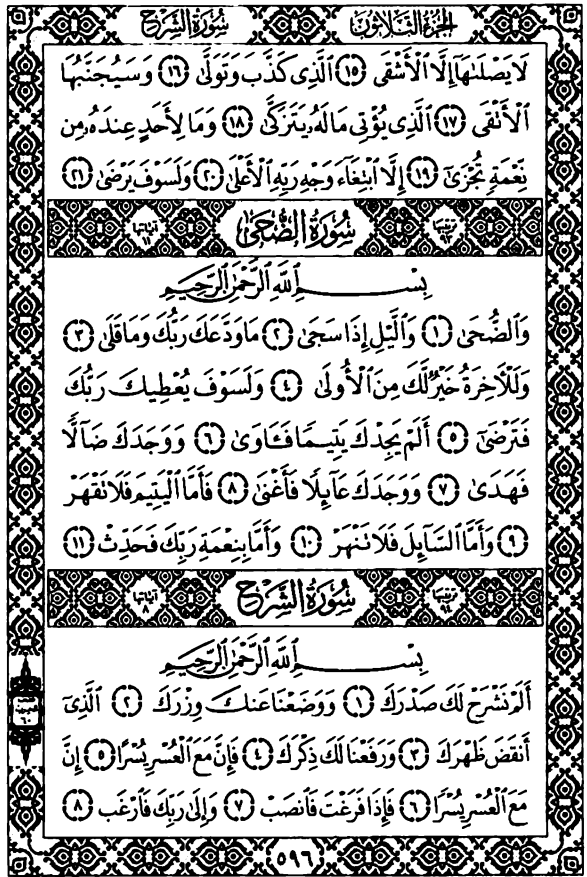 الجزء الثلاثون
سورة الشرح
لَا يَصْلَىٰهَآ إِلَّا ٱلْأَشْقَى ١٥ ٱلَّذِى كَذَّبَ وَتَوَلَّىٰ ١٦ وَسَيُجَنَّبُهَا
ٱلْأَتْقَى ١٧ ٱلَّذِى يُؤْتِى مَالَهُۥ يَتَزَكَّىٰ ١٨ وَمَا لِأَحَدٍ عِندَهُۥ مِن
نِّعْمَةٍ تُجْزَىٰٓ ١٩ إِلَّا ٱبْتِغَآءَ وَجْهِ رَبِّهِ ٱلْأَعْلَىٰ ٢٠ وَلَسَوْفَ يَرْضَىٰ ٢١
ترتيبها ٩٣ سُورَةُ الضُّحَىٰ آياتها ١١
بِسْمِ ٱللَّهِ ٱلرَّحْمَٰنِ ٱلرَّحِيمِ
وَٱلضُّحَىٰ ١ وَٱلَّيْلِ إِذَا سَجَىٰ ٢ مَا وَدَّعَكَ رَبُّكَ وَمَا قَلَىٰ ٣
وَلَلْأَخِرَةُ خَيْرٌ لَّكَ مِنَ ٱلْأُولَىٰ ٤ وَلَسَوْفَ يُعْطِيكَ رَبُّكَ
فَتَرْضَىٰٓ ٥ أَلَمْ يَجِدْكَ يَتِيمًا فَـَٔاوَىٰ ٦ وَوَجَدَكَ ضَآلًّا
فَهَدَىٰ ٧ وَوَجَدَكَ عَآئِلًا فَأَغْنَىٰ ٨ فَأَمَّا ٱلْيَتِيمَ فَلَا تَقْهَرْ
٩ وَأَمَّا ٱلسَّآئِلَ فَلَا تَنْهَرْ ١٠ وَأَمَّا بِنِعْمَةِ رَبِّكَ فَحَدِّثْ ١١
ترتيبها ٩٤ سُورَةُ الشَّرْحِ آياتها ٨
بِسْمِ ٱللَّهِ ٱلرَّحْمَٰنِ ٱلرَّحِيمِ
أَلَمْ نَشْرَحْ لَكَ صَدْرَكَ ١ وَوَضَعْنَا عَنكَ وِزْرَكَ ٢ ٱلَّذِىٓ
أَنقَضَ ظَهْرَكَ ٣ وَرَفَعْنَا لَكَ ذِكْرَكَ ٤ فَإِنَّ مَعَ ٱلْعُسْرِ يُسْرًا ٥ إِنَّ
مَعَ ٱلْعُسْرِ يُسْرًا ٦ فَإِذَا فَرَغْتَ فَٱنصَبْ ٧ وَإِلَىٰ رَبِّكَ فَٱرْغَب ٨
٥٩٦